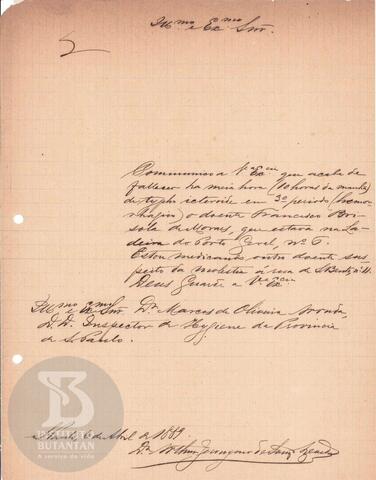 Illmo e Exmo Snr.
Communico a V. Excia que acaba de
fallecer ha meia hora (10 horas da manhã)
de typho icteroide em 3º periodo (hemor-
rhagico) o doente Francisco
de Moraes, que estava na La-
deira do Porto Geral, nº 6.
Estou medicando outro doente sus-
peito da molestia á rua de S. Bento nº 11.
Deus Guarde a V. Excia
Illmo e Exmo Snr. Dr. Marcos de Oliveira Arruda
D. D. Inspector de Hygiene da Provincia
de S. Paulo.
S. Paulo de Abril de 1889
Dr.
INSTITUTO
BUTANTAN
A serviço da vida